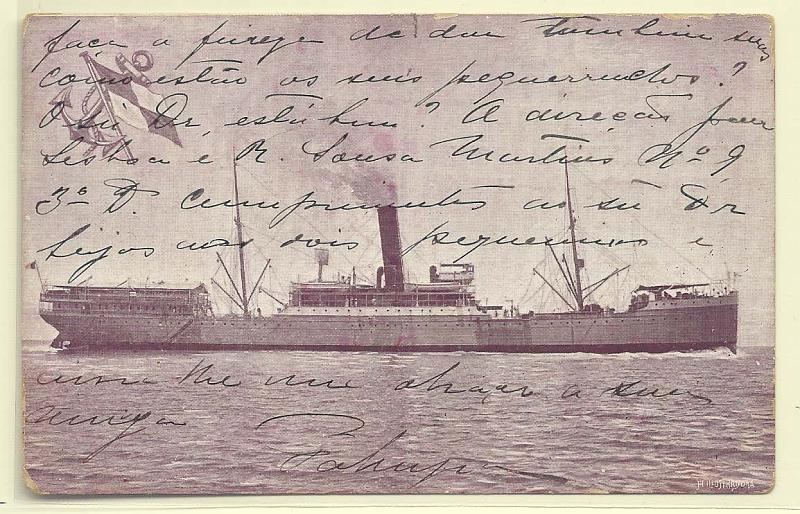 faça a fineza de dar tambem suas
como estão os seus pequerruchos?
O sñr Dr, está bem? A direcção para
Lisboa é R. Sousa Martins Nº 9
3º D. Cumprimentos ao sñr Dr
beijos aos dois pequeninos e
uma
abraço a sua
amiga